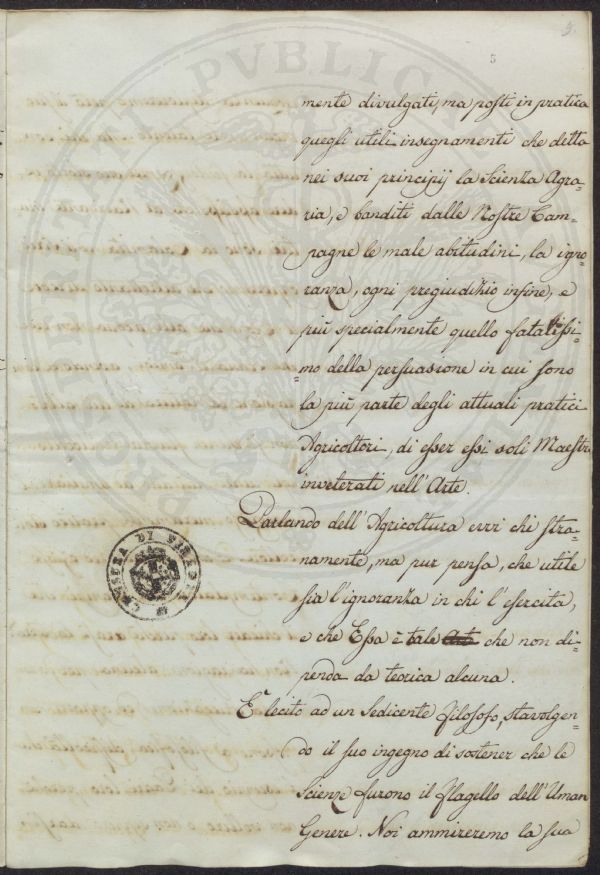 5.
5
mente divulgati, ma posti in pratica
quegli utili insegnamenti che detta
nei suoi principij la Scienza Agra=
ria, e banditi dalle Nostre Cam=
pagne le male abitudini, la igno=
ranza, ogni pregiudizio infine, e
più specialmente quello fatalissi=
mo della persuasione in cui sono
la più parte degli attuali pratici
Agricoltori, di esser essi soli Maestri
inveterati nell'Arte.
Parlando dell'Agricoltura evvi chi stra=
namente, ma pur pensa, che utile
sia l'ignoranza in chi l'esercita,
e che Essa è tale che non di=
penda da teorica alcuna.
E' lecito ad un Sedicente filosofo, stavolgen=
do il suo ingegno di sostener che le
Scienze furono il flagello dell'Uman
Genere. Noi ammireremo la sua
CENSURA DI FIRENZE